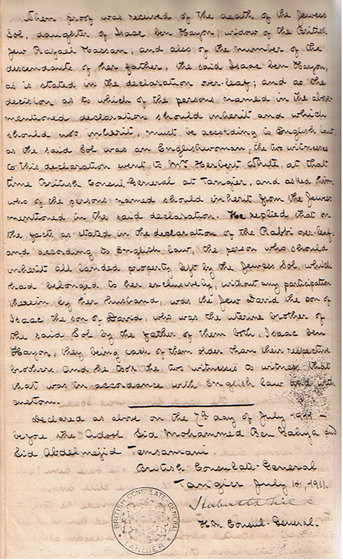 When proof was received of the death of the Jewess
Sol, daughter of Isaac ben Hayon, widow of the British
Jew Rafael Hassan, and also of the number of the
descendants of her father, the said Isaac ben Hayon,
as is stated in the declaration over-leaf; and as the
decision as to which of the persons named in the above
mentioned declaration should inherit and which
should not inherit, must be according to English law
as the said Sol was an Englishwoman; the two witnesses
to this declaration went to Mr. Herbert White, at that
time British Consul-General at Tangier, and asked him
who of the persons named should inherit from the Jewess
mentioned in the said declaration. He replied that on
the facts as stated in the declaration of the Rabbi over-leaf,
and according to English law, the person who should
inherit all landed property left by the Jewess Sol, which
had belonged to her exclusively, without any participation
therein by her husband, was the Jew David the son of
Isaac the son of David, who was the uterine brother of
the said Sol by the father of them both, Isaac ben
Hayon, they being each of them older than their respective
brothers. And he took the two witnesses to witness that
that was in accordance with English law and
custom.
Declared as above on the 7th day of July
before the Adool Sid Mohammed Ben Yahya and
Sid Abdelmejid Temsamani.
British Consulate-General
Tangier July 14, 1911.
Herbert White
H.M. Consul-General.
BRITISH CONSULATE GENERAL
TANGIER